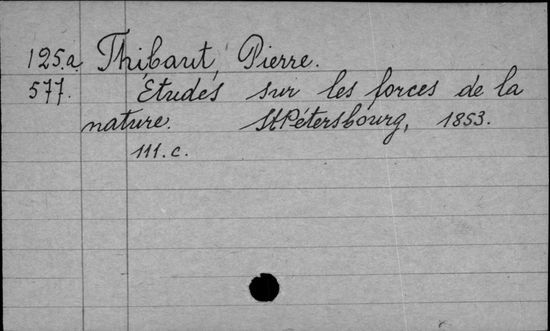 125.a. Thibaut, Pierre.
577. Études sur les forces de la
nature. St Pétersbourg, 1853.
111.c.